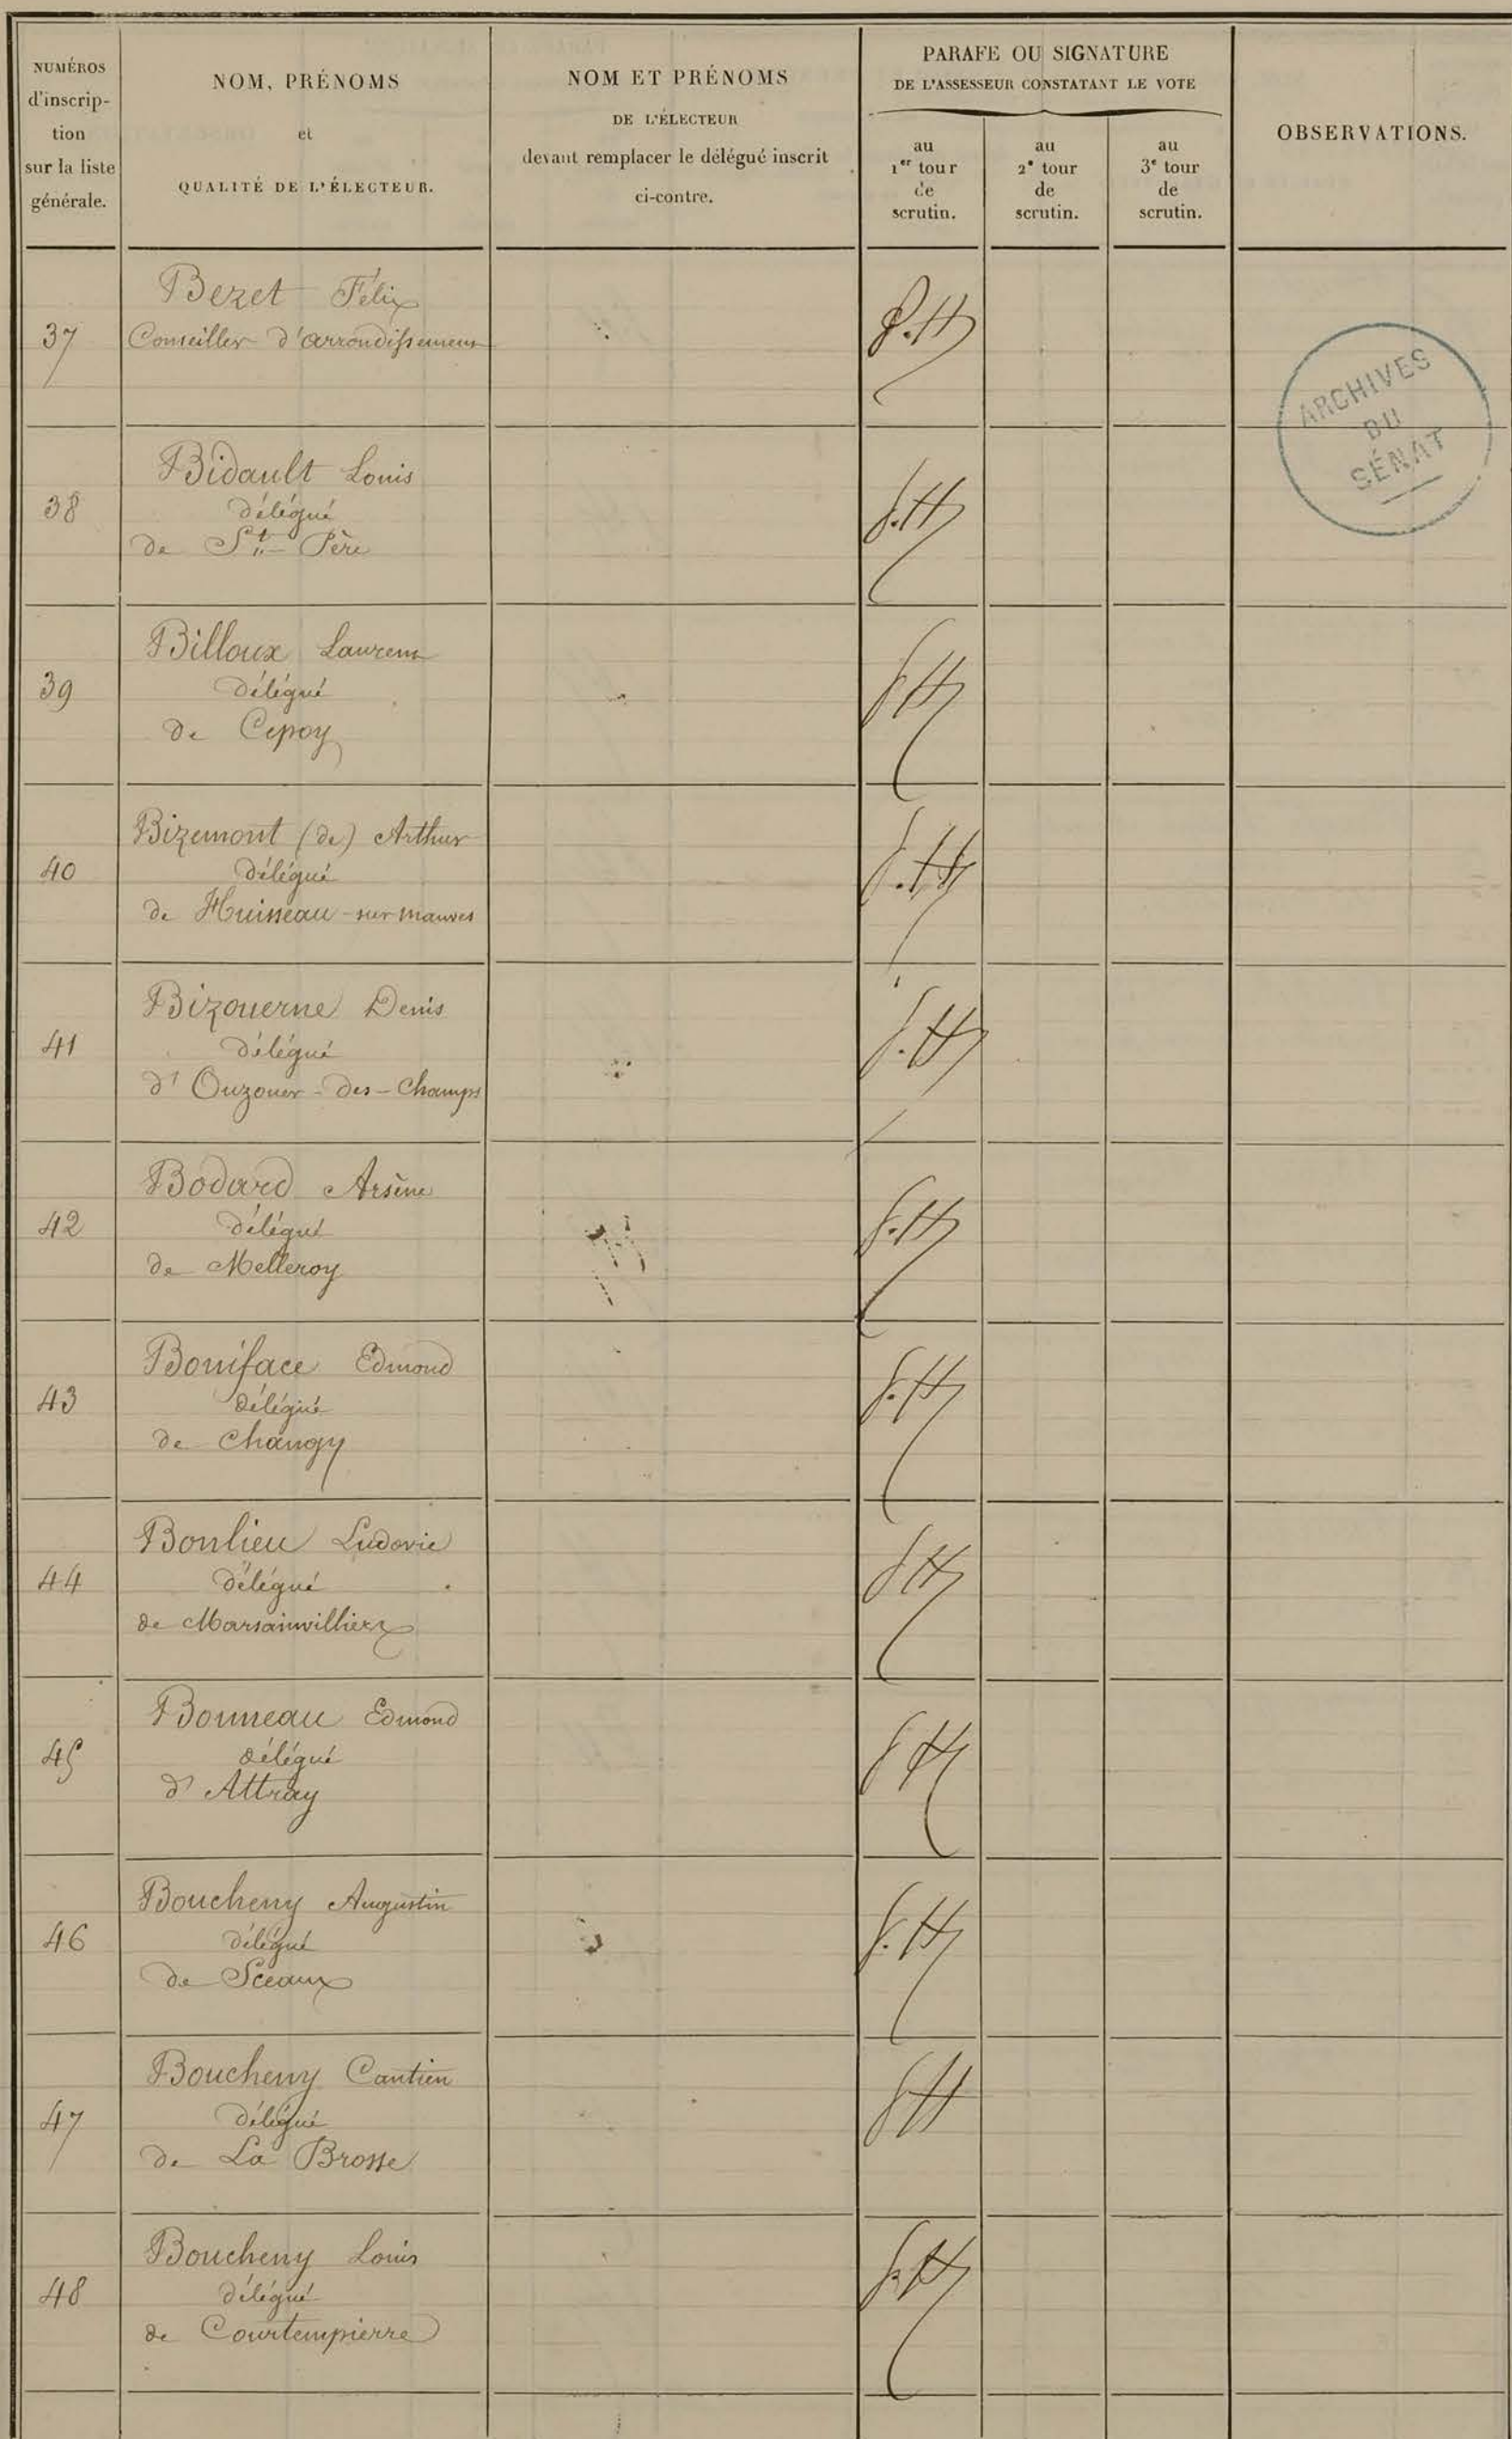 NUMÉROS
d'inscrip-
tion
sur la liste
générale.
NOM, PRÉNOMS
et
QUALITÉ DE L'ÉLECTEUR.
NOM ET PRÉNOMS
DE L'ÉLECTEUR
devant remplacer le délégué inscrit
ci-contre.
PARAFE OU SIGNATURE
DE L'ASSESSEUR CONSTATANT LE VOTE
au
1er tour
de
scrutin.
au
2e tour
de
scrutin.
au
3e tour
de
scrutin.
OBSERVATIONS.
Bezet Félix
37 Conseiller d'arrondissement
ARCHIVES
DU
SÉNAT
Bidault Louis
38 délégué
de St Père
Billoux Laurent
39 délégué
de Cepoy
Bizemont (de) Arthur
40 délégué
de Huisseau-sur-mauves
Bizouerne Denis
41 délégué
d'Ouzouer-des-Champs
Bodard Arsène
42 délégué
de Melleroy
Boniface Edmond
43 délégué
de Changy
Bonlieu Ludovic
44 délégué
de Marsainvilliers
Bonneau Edmond
45 délégué
d'Attray
Boucheny Augustin
46 délégué
de Sceaux
Boucheny Cantien
47 délégué
de La Brosse
Boucheny Louis
48 délégué
de Courtempierre